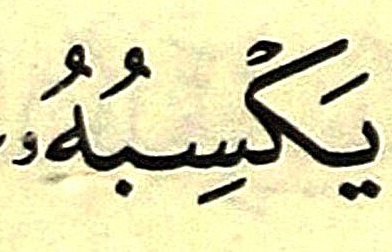 يَكْسِبُهُۥ